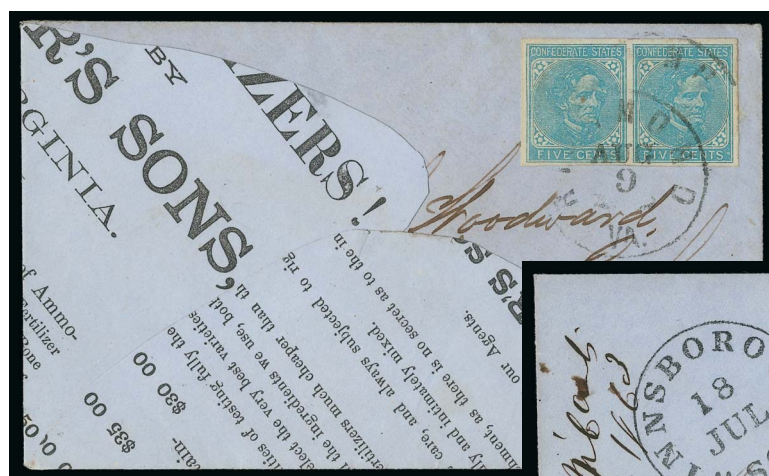 R'S SONS,
BY
IZERS!
RGINIA.
CONFEDERATE STATES CONFEDERATE STATES
FIVE CENTS FIVE CENTS
AUG
9
VA.
Woodward,
of Ammo-
Fertilizer
Bone
$35 00
$30 00
ties of testing fully the
select the very best varieties
the ingredients we use, both
fertilizers much cheaper than th
care, and always subjected to rig
ly and intimately mixed.
nment, as there is no secret as to the in
our Agents.
R'S S
NNSBORO
18
JUL
1863